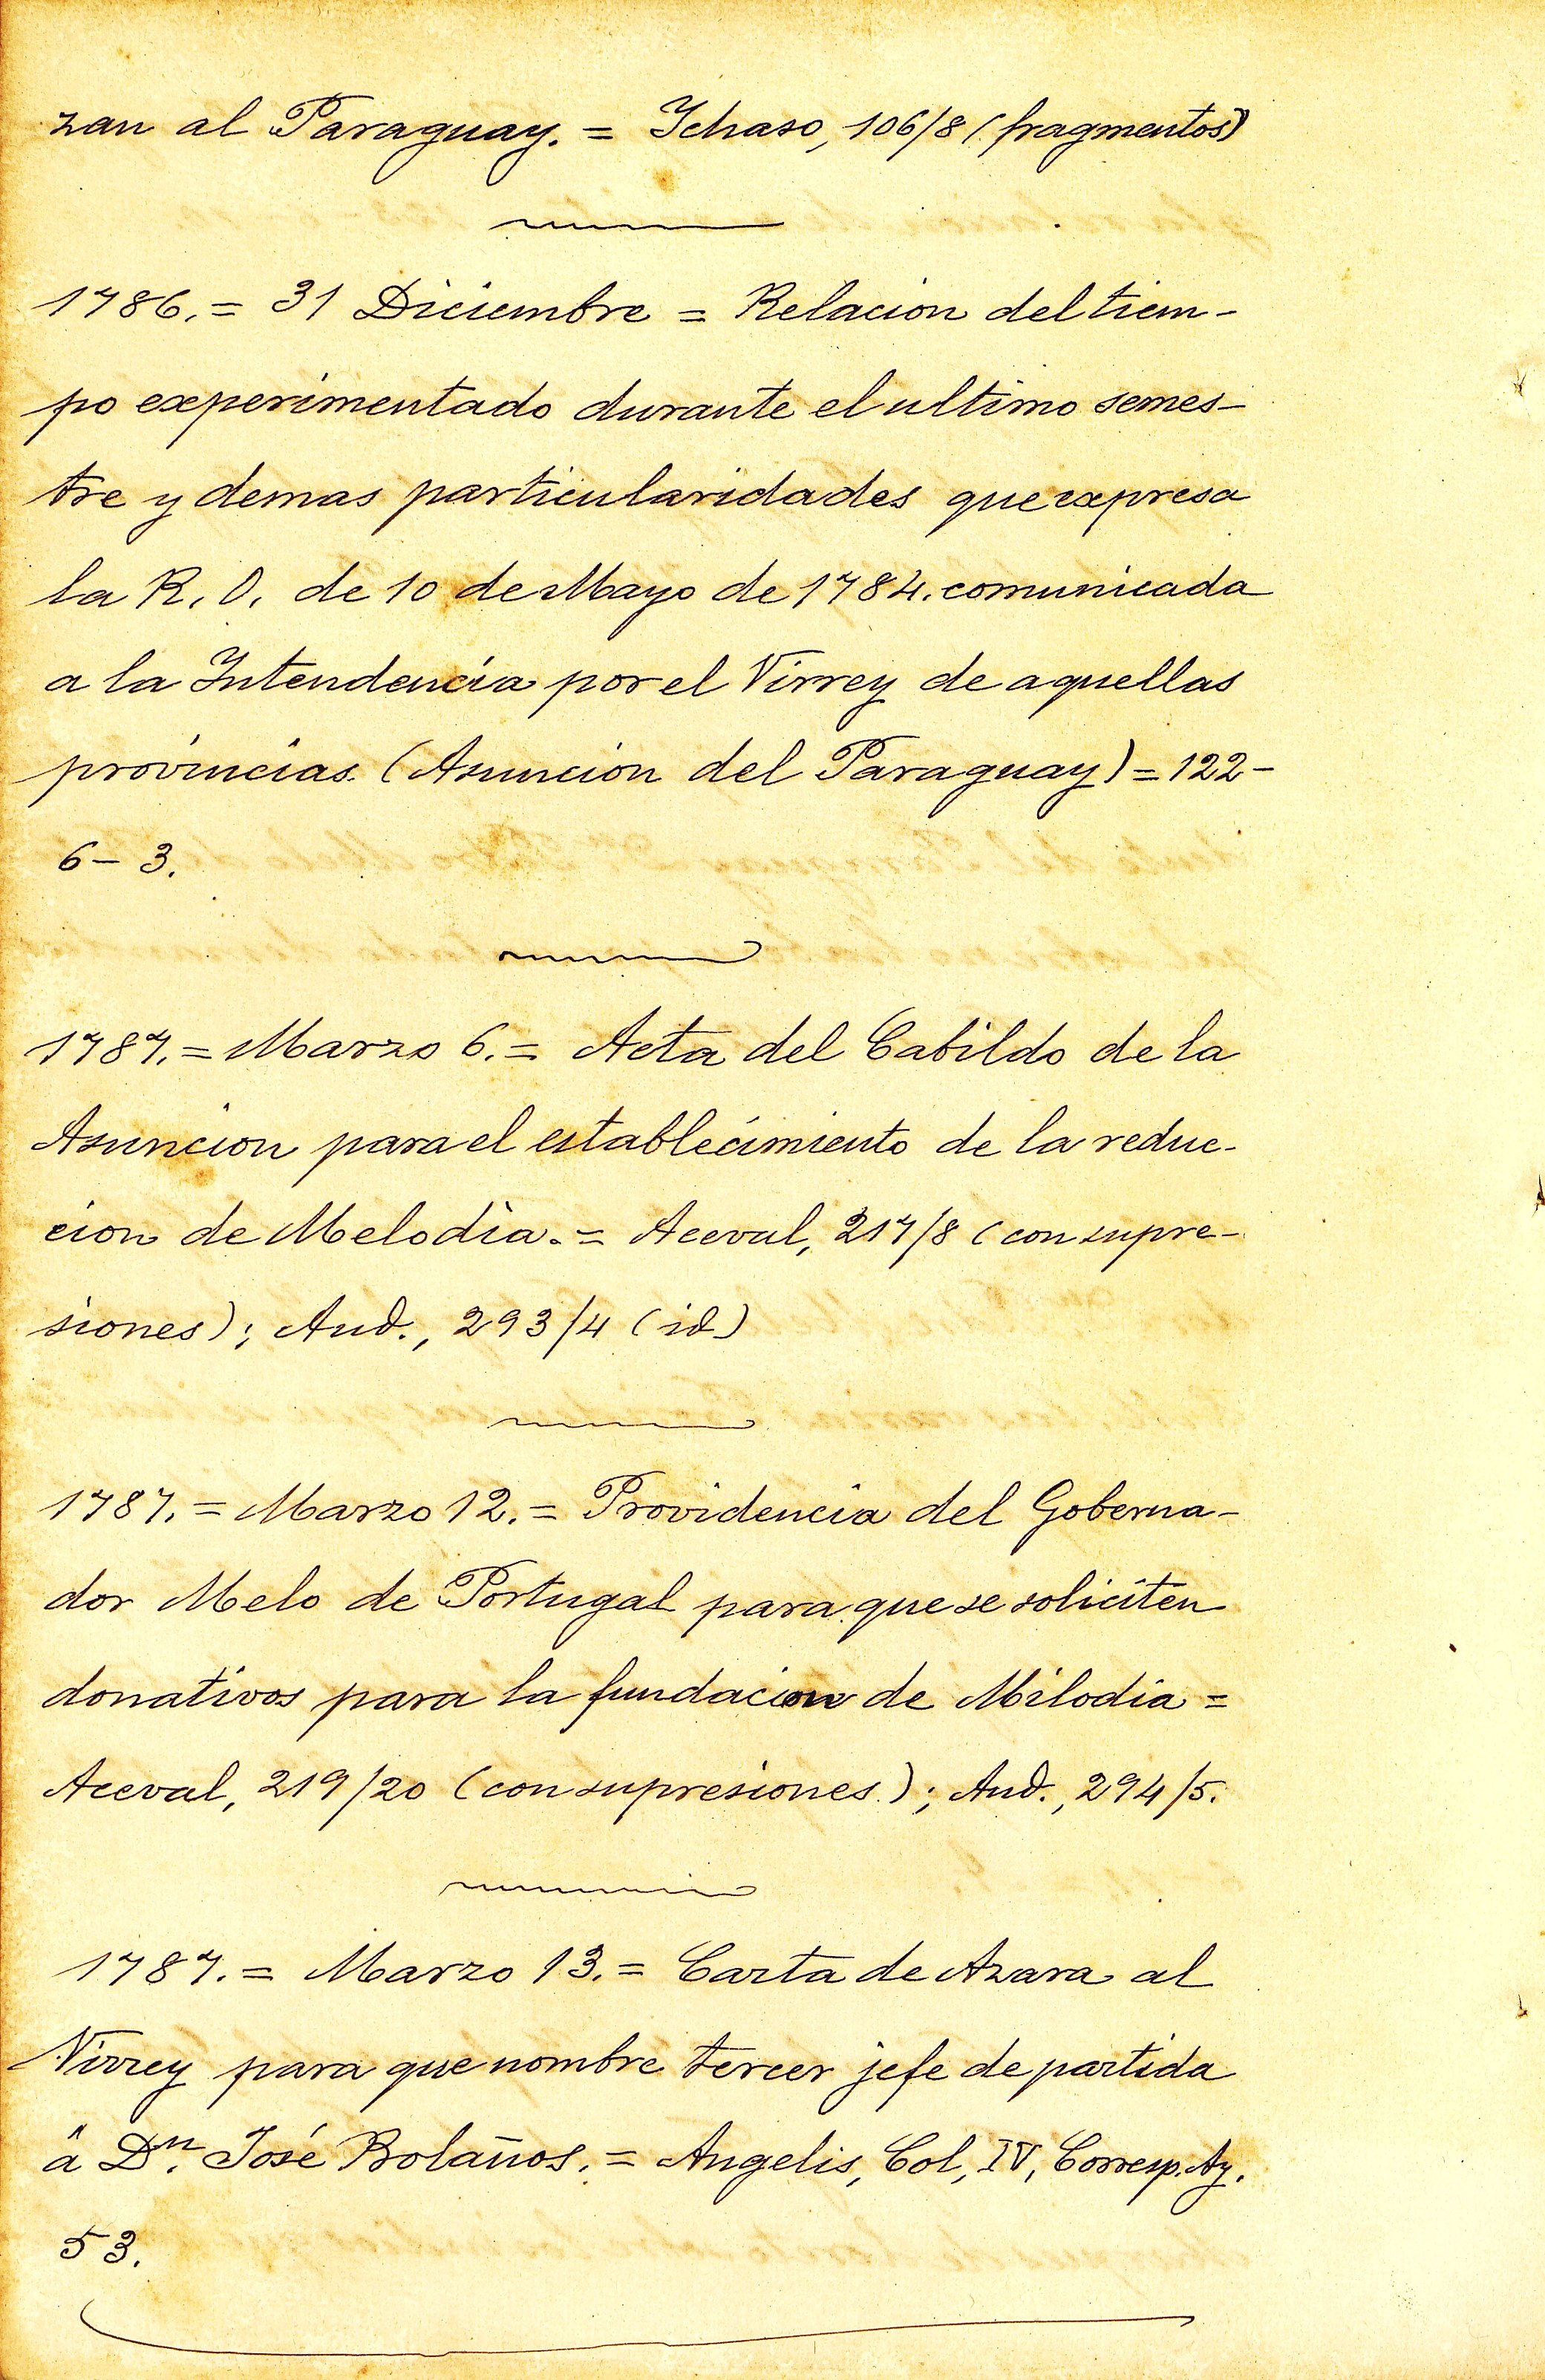 zan al Paraguay. = Ichaso, 106/8 (fragmentos)
1786. = 31 Diciembre = Relacion del tiem-
po experimentado durante el ultimo semes-
tre y demas particularidades que expresa
la R. O. de 10 de Mayo de 1784. comunicada
a la Intendencia por el Virrey de aquellas
provincias. (Asuncion del Paraguay) = 122-
6-3.
1787. = Marzo 6. = Acta del Cabildo de la
Asuncion para el establecimiento de la reduc-
cion de Melodia. = Aceval, 217/8 (con supre-
siones); Aud., 293/4 (id)
1787. = Marzo 12. = Providencia del Goberna-
dor Melo de Portugal para que se soliciten
donativos para la fundacion de Milodia =
Aceval, 219/20 (con supresiones); Aud., 294/5.
1787. = Marzo 13. = Carta de Azara al
Virrey para que nombre tercer jefe de partida
â Dn. José Bolaños. = Angelis, Col, IV, Corresp. Az.
53.